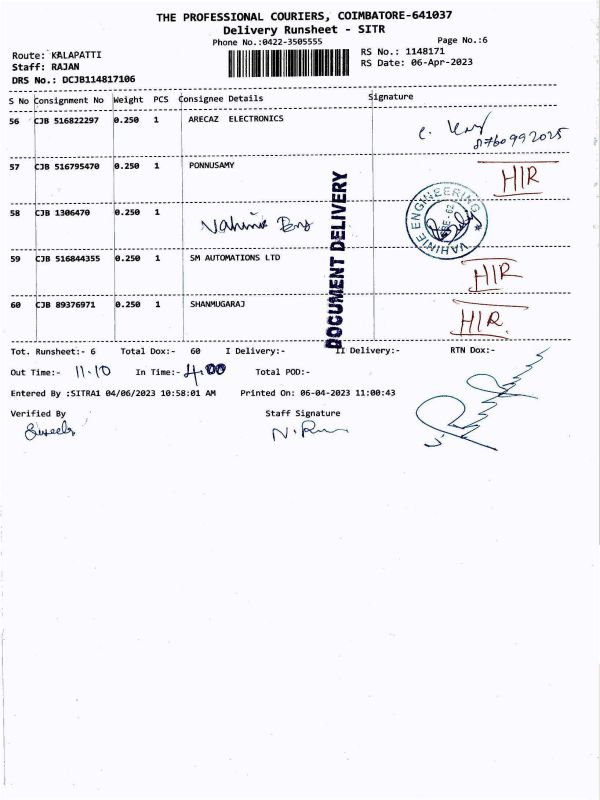 THE PROFESSIONAL COURIERS, COIMBATORE-641037
Delivery Runsheet - SITR
Phone No.:0422-3505555
Page No.:6
Route: KALAPATTI
RS No.: 1148171
Staff: RAJAN
RS Date: 06-Apr-2023
DRS No.: DCJB114817106
S No Consignment No Weight PCS Consignee Details Signature
56 CJB 516822297 0.250 1 ARECAZ ELECTRONICS
8760992025
57 CJB 516795470 0.250 1 PONNUSAMY HIR
58 CJB 1306470 0.250 1 Vahinie Eng
VAHINIE ENGINEERING
59 CJB 516844355 0.250 1 SM AUTOMATIONS LTD HIR
60 CJB 89376971 0.250 1 SHANMUGARAJ HIR
DOCUMENT DELIVERY
Tot. Runsheet:- 6 Total Dox:- 60 I Delivery:- II Delivery:- RTN Dox:-
Out Time:- 11.10 In Time:- 4.00 Total POD:-
Entered By :SITRA1 04/06/2023 10:58:01 AM Printed On: 06-04-2023 11:00:43
Verified By Staff Signature